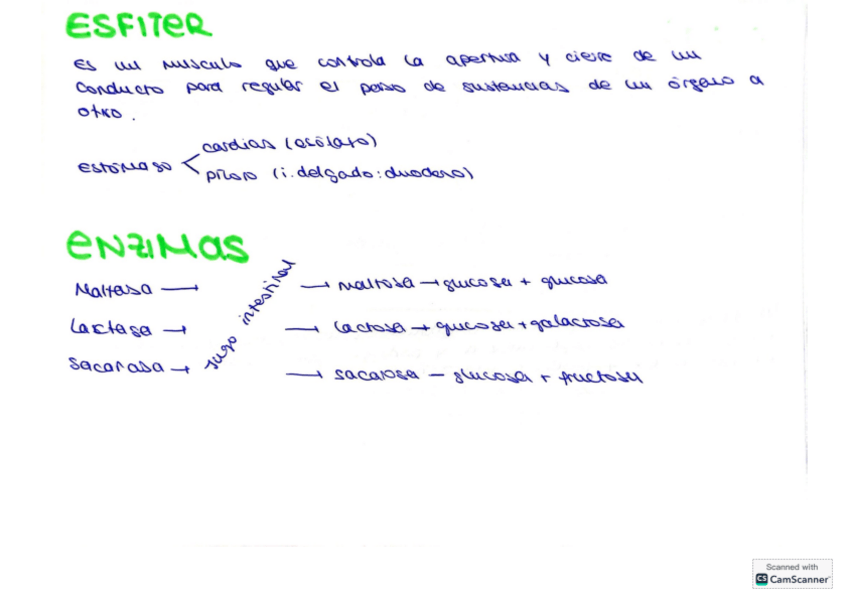 ESFITER
Es un musculo que controla la apertura y cierre de un
conducto para regular el paso de sustancias de un órgano a
otro.
Estómago cardias (esófago)
piloro (i. delgado: duodeno)
ENZIMAS
Maltasa → jugo intestinal → maltosa → glucosa + glucosa
Lactasa → → lactosa → glucosa + galactosa
Sacarasa → → sacarosa — glucosa + fructosa
Scanned with
CS CamScanner